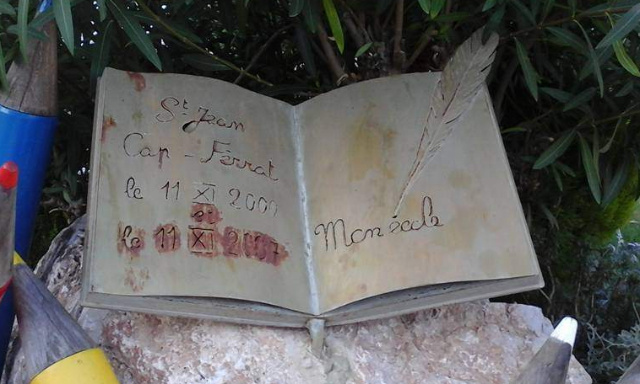 St Jean
Cap - Ferrat
le 11 XI 2000
et
le 11 XI 2007
Mon ecole